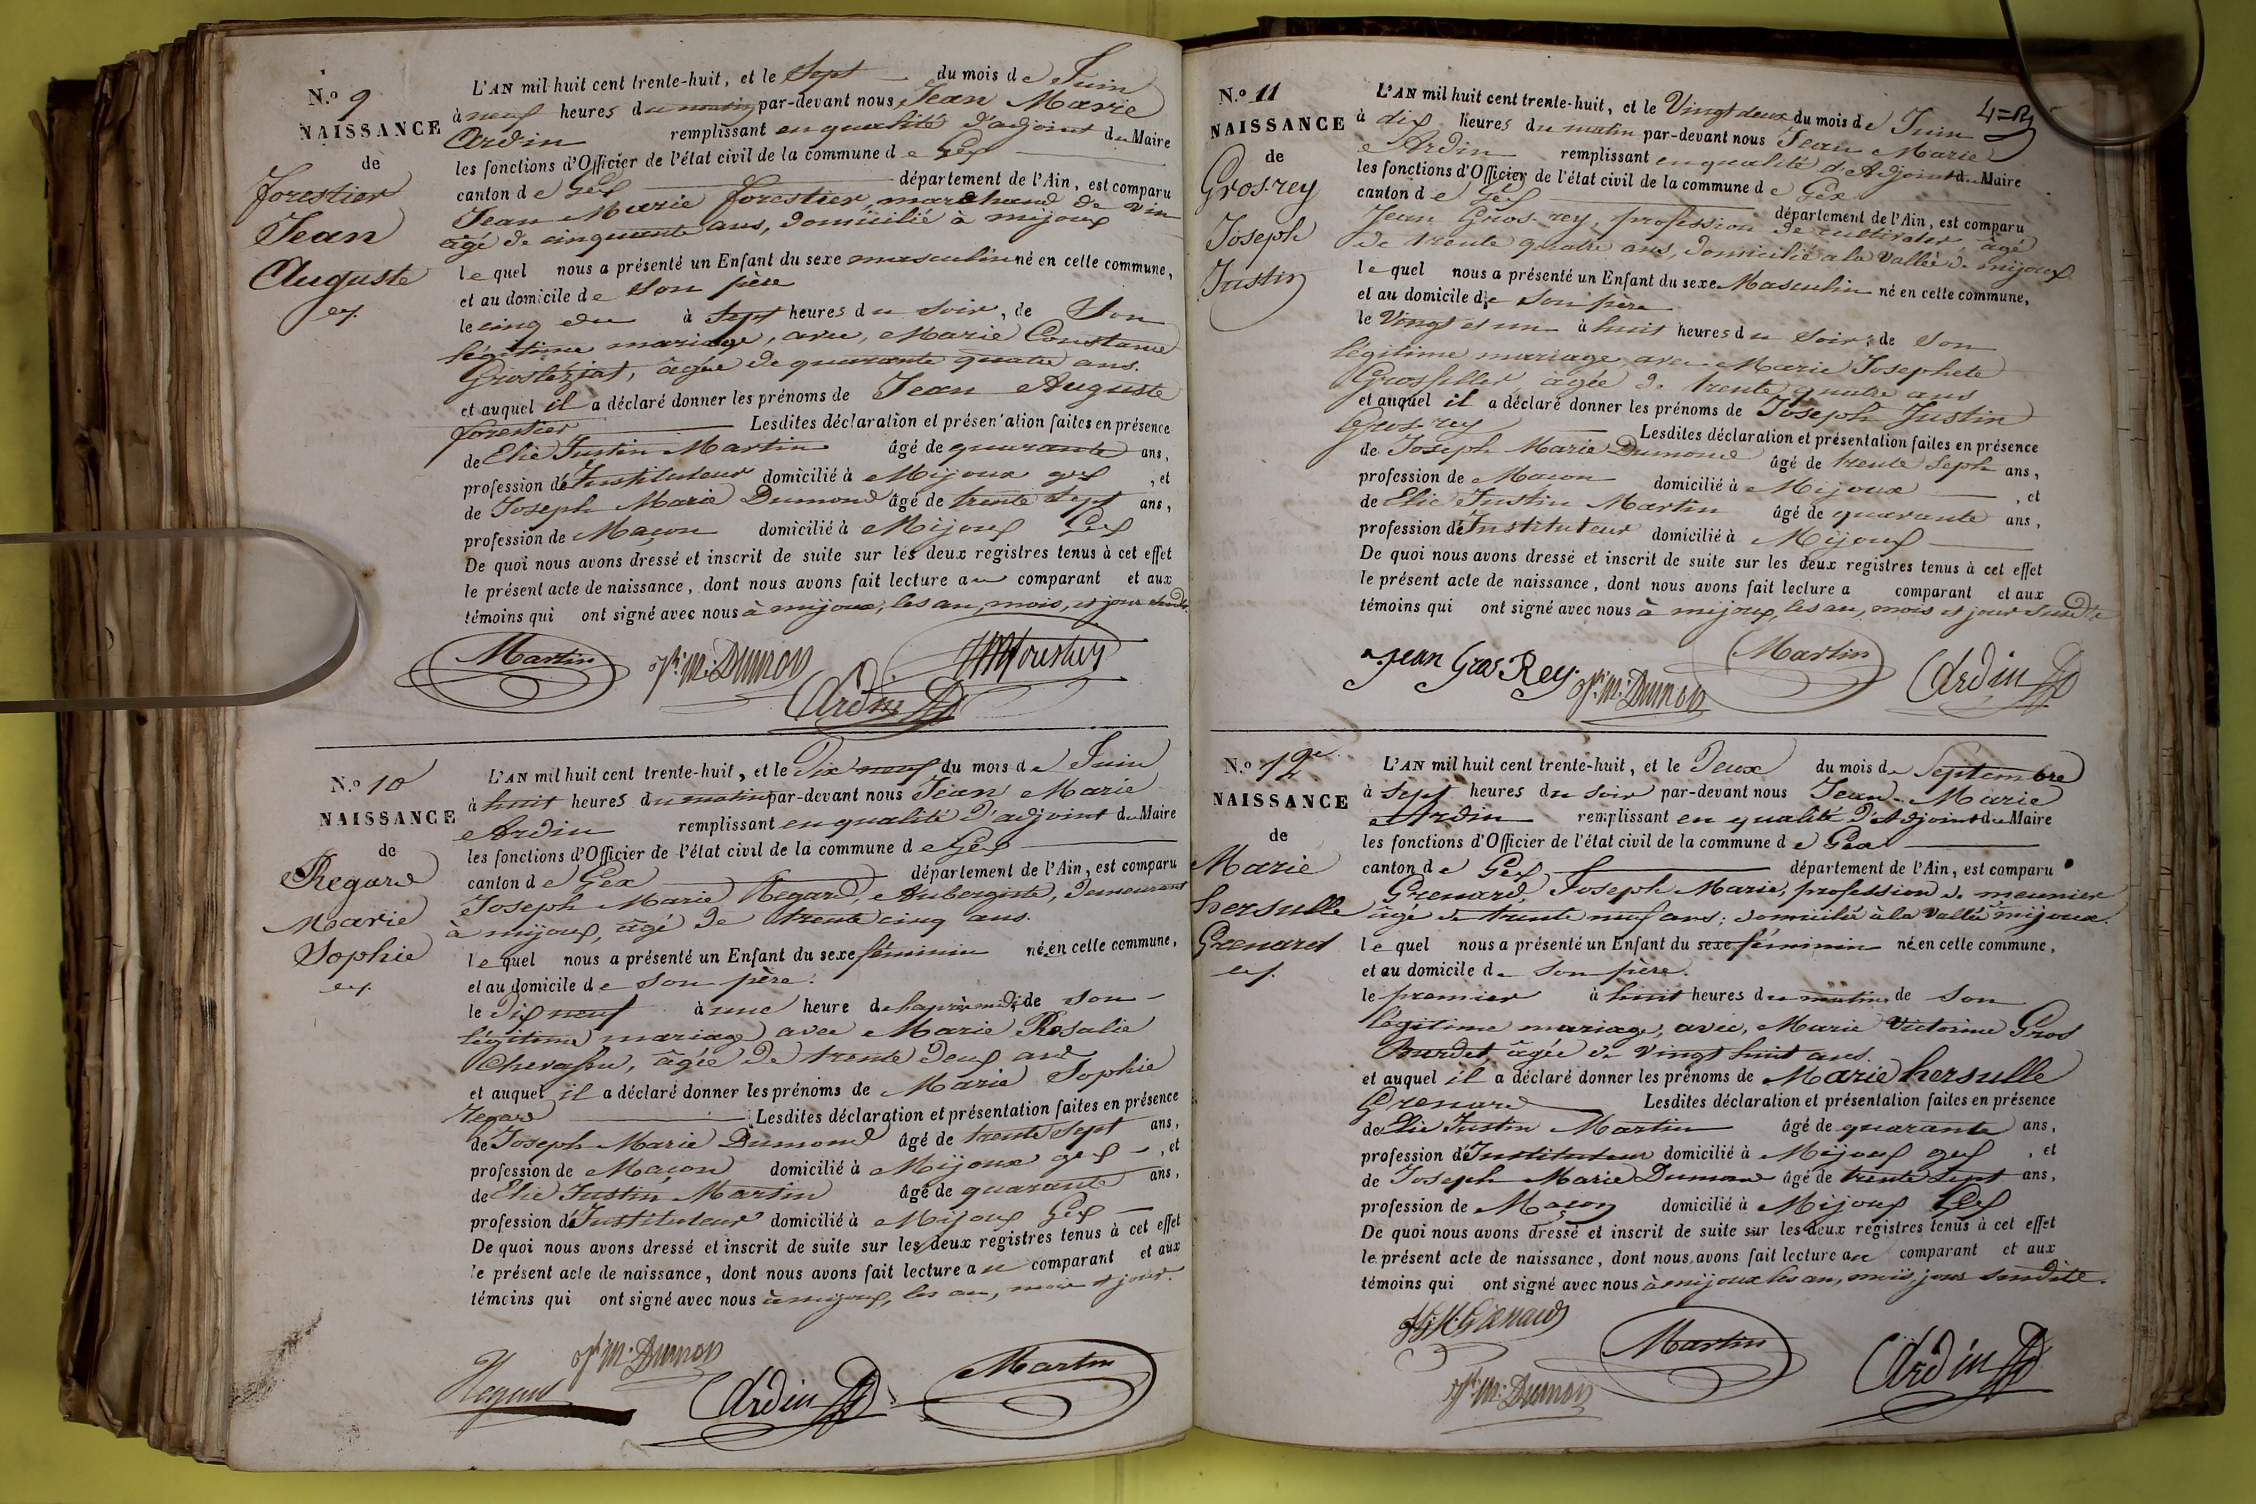 N.º 9
NAISSANCE
de
forestier
Jean
Auguste
L'AN mil huit cent trente-huit, et le Sept du mois de Juin
à neuf heures du matin par-devant nous Jean Marie
Ardin remplissant en qualité d'adjoint du Maire
les fonctions d'Officier de l'état civil de la commune de Gex
canton de Gex département de l'Ain, est comparu
Jean Marie forestier, marchand de vin
âgé de cinquante ans, domicilié à mijoux
lequel nous a présenté un Enfant du sexe masculin né en cette commune,
et au domicile de son père
le cinq du à sept heures du soir, de Son
légitime mariage, avec, Marie Constance
Grosfézjat, âgée de quarante quatre ans.
et auquel il a déclaré donner les prénoms de Jean Auguste
forestier Lesdites déclaration et présentation faites en présence
de Elie Justin Martin âgé de quarante ans,
profession d'Instituteur domicilié à Mijoux gex , et
de Joseph Marie Dumond âgé de trente Sept ans,
profession de Maçon domicilié à Mijoux Gex
De quoi nous avons dressé et inscrit de suite sur les deux registres tenus à cet effet
le présent acte de naissance, dont nous avons fait lecture au comparant et aux
témoins qui ont signé avec nous à mijoux, les an, mois, et jour susdits.
Martin Jh. M. Dumon JMForestier
Ardin
N.º 10
NAISSANCE
de
Regard
Marie
Sophie
L'AN mil huit cent trente-huit, et le Dix neuf du mois de Juin
à huit heures du matin par-devant nous Jean Marie
Ardin remplissant en qualité d'adjoint du Maire
les fonctions d'Officier de l'état civil de la commune de Gex
canton de Gex département de l'Ain, est comparu
Joseph Marie Regard, Aubergiste, demeurant
à mijoux, âgé de trente cinq ans.
lequel nous a présenté un Enfant du sexe féminin né en cette commune,
et au domicile de son père.
le dix neuf à une heure de l'après midi de son
légitime mariage avec Marie Rosalie
Chevassu, âgée de trente deux ans
et auquel il a déclaré donner les prénoms de Marie Sophie
regard Lesdites déclaration et présentation faites en présence
de Joseph Marie Dumond âgé de trente sept ans,
profession de Maçon domicilié à Mijoux gex , et
de Elie Justin Martin âgé de quarante ans,
profession d'Instituteur domicilié à Mijoux Gex
De quoi nous avons dressé et inscrit de suite sur les deux registres tenus à cet effet
le présent acte de naissance, dont nous avons fait lecture au comparant et aux
témoins qui ont signé avec nous à mijoux, les an, mois et jour.
Regard Jh. M. Dumon Ardin Martin
N.º 11
NAISSANCE
de
Gros-rey
Joseph
Justin
L'AN mil huit cent trente-huit, et le Vingt deux du mois de Juin
à dix heures du matin par-devant nous Jean Marie
Ardin remplissant en qualité d'Adjoint du Maire
les fonctions d'Officier de l'état civil de la commune de Gex
canton de Gex département de l'Ain, est comparu
Jean Gros-rey, profession de cultivateur, âgé
de trente quatre ans, domicilié à la Vallée de mijoux
lequel nous a présenté un Enfant du sexe Masculin né en cette commune,
et au domicile de son père
le Vingt et un à huit heures du Soir, de Son
légitime mariage avec Marie Josephete
Grosfiller âgée de trente quatre ans
et auquel il a déclaré donner les prénoms de Joseph Justin
Gros rey Lesdites déclaration et présentation faites en présence
de Joseph Marie Dumond âgé de trente Seph ans,
profession de Macon domicilié à Mijoux , et
de Elie Justin Martin âgé de quarante ans,
profession d'Instituteur domicilié à Mijoux
De quoi nous avons dressé et inscrit de suite sur les deux registres tenus à cet effet
le présent acte de naissance, dont nous avons fait lecture a comparant et aux
témoins qui ont signé avec nous à mijoux, les an, mois et jour susdits
jean Gros-Rey Jh. M. Dumon Martin Ardin
N.º 12e
NAISSANCE
de
Marie
hersulle
Grenard
L'AN mil huit cent trente-huit, et le Deux du mois de Septembre
à Sept heures du soir par-devant nous Jean-Marie
Ardin remplissant en qualité d'Adjoint du Maire
les fonctions d'Officier de l'état civil de la commune de Gex
canton de Gex département de l'Ain, est comparu
Grenard, Joseph Marie, profession de meunier
âgé de trente neuf ans; domicilié à la Vallée mijoux.
lequel nous a présenté un Enfant du sexe féminin né en cette commune,
et au domicile de son père.
le premier à huit heures du matin de son
légitime mariage, avec, Marie Victorine Gros
Burdet, âgée de Vingt huit ans.
et auquel il a déclaré donner les prénoms de Marie hersulle
Grenard Lesdites déclaration et présentation faites en présence
de Elie Justin Martin âgé de quarante ans,
profession d'Instituteur domicilié à Mijoux gex , et
de Joseph Marie Dumond âgé de trente Sept ans,
profession de Maçon domicilié à Mijoux Gex
De quoi nous avons dressé et inscrit de suite sur les deux registres tenus à cet effet
le présent acte de naissance, dont nous avons fait lecture au comparant et aux
témoins qui ont signé avec nous à mijoux les an, mois, jour susdits.
Jh. M. Grenard Martin Ardin
Jh. M. Dumon